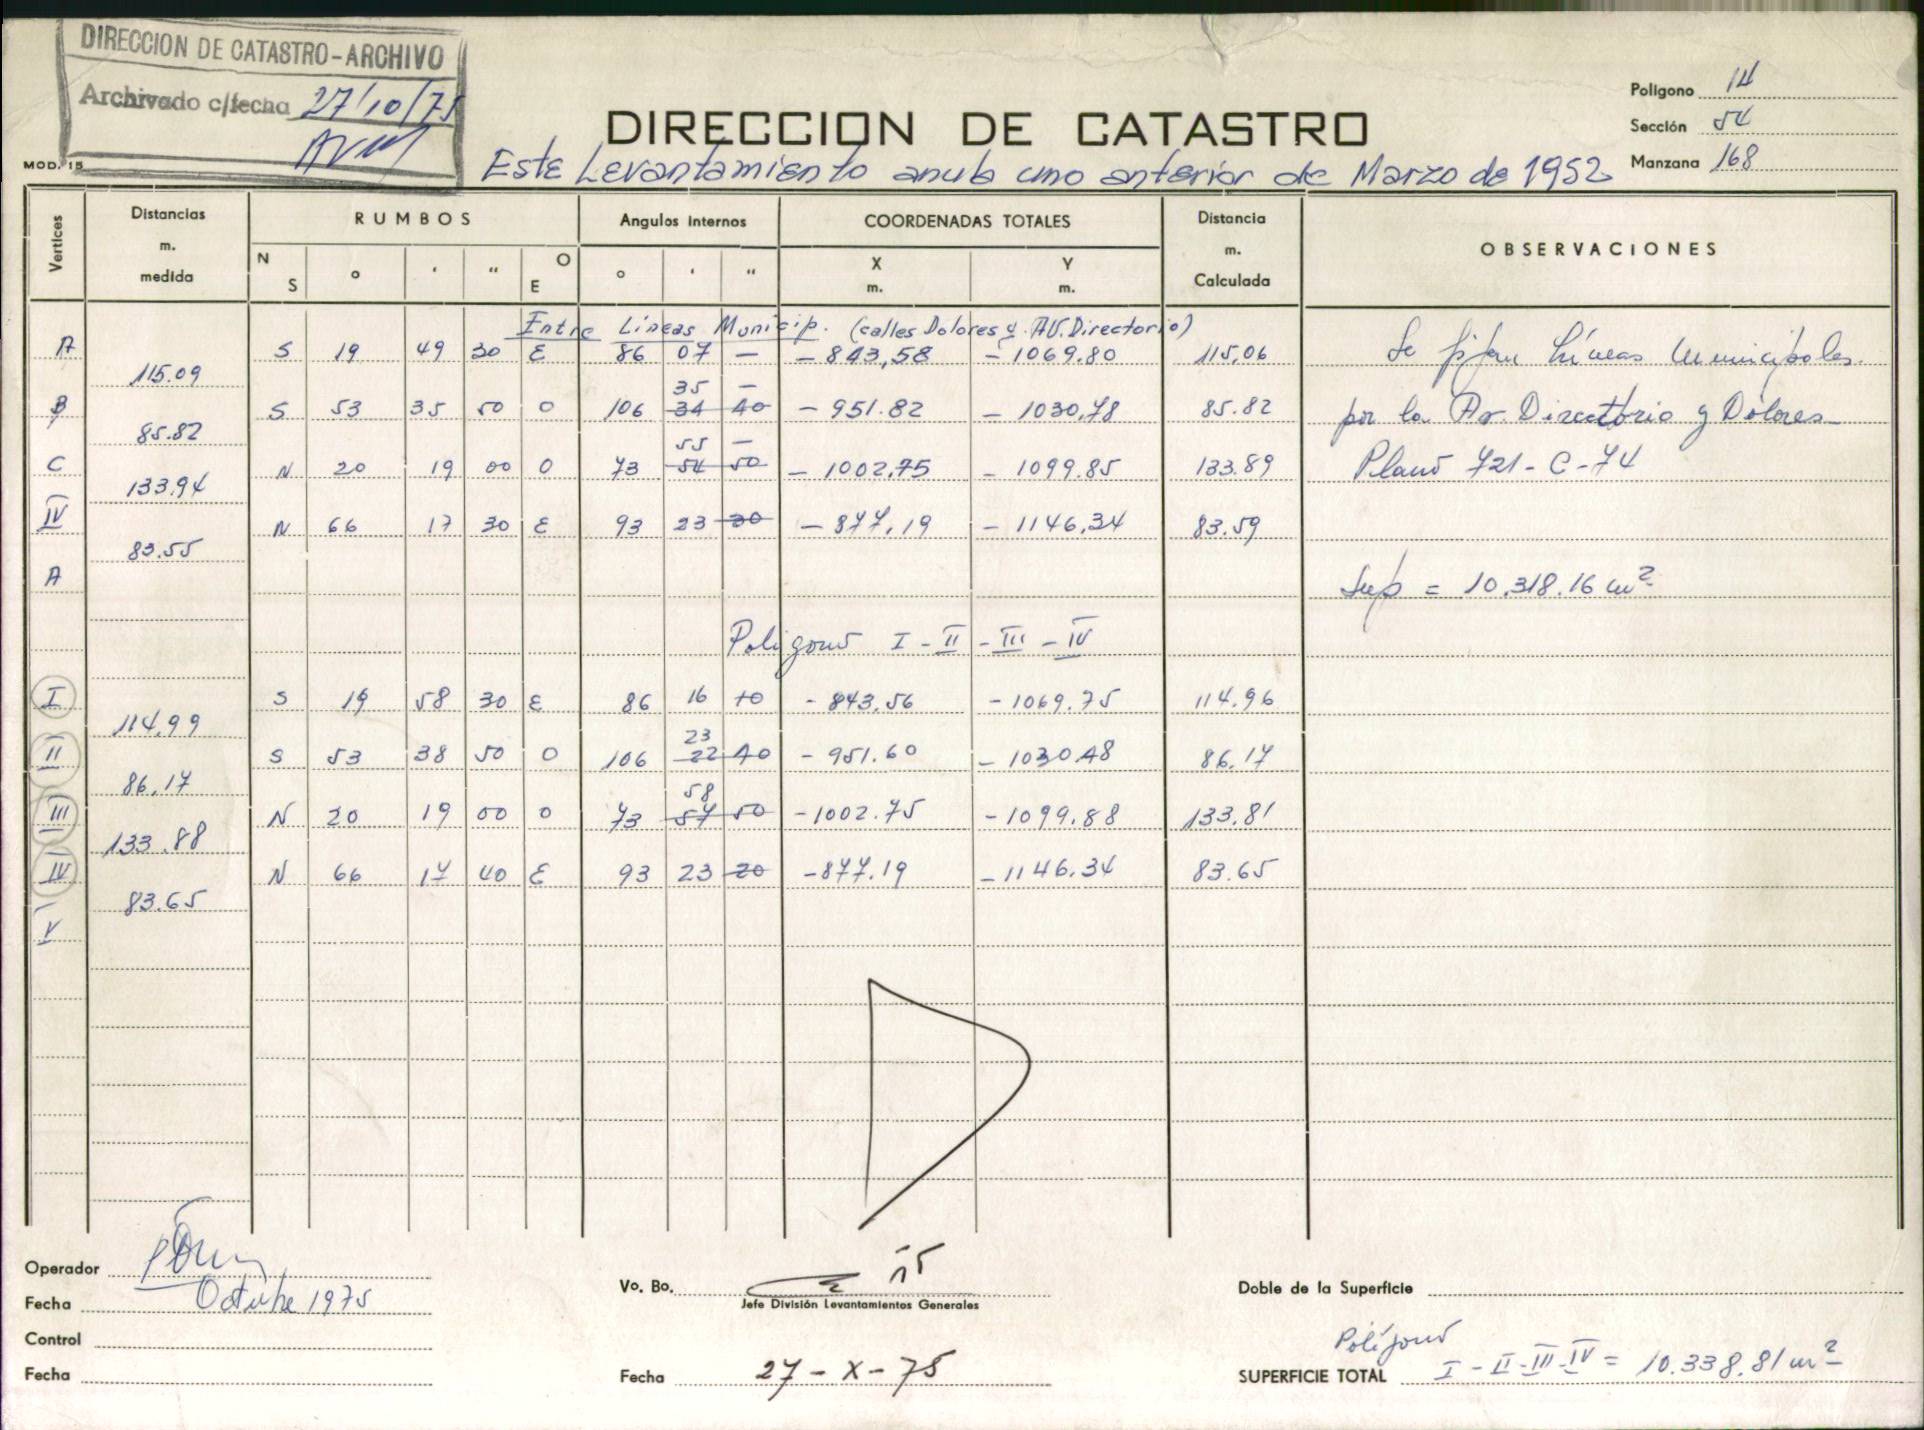 DIRECCION DE CATASTRO-ARCHIVO
Archivado c/fecha 27/10/75
MOD. 15
DIRECCION DE CATASTRO
Este Levantamiento anula uno anterior de Marzo de 1952
Poligono 14
Sección 54
Manzana 168
Vertices Distancias m. medida RUMBOS Angulos Internos COORDENADAS TOTALES Distancia m. Calculada OBSERVACIONES
N S ° ' " O E ° ' " X m. Y m.
Entre Líneas Municip. (calles Dolores y AV. Directorio)
A S 19 49 30 E 86 07 — -843,58 -1069.80 115,06 Se fijan Líneas Municipales
115.09
35 —
B S 53 35 50 O 106 34 40 -951.82 -1030,78 85.82 por la Av. Directorio y Dolores
85.82
55 —
C N 20 19 00 O 73 54 50 -1002,75 -1099.85 133.89 Plano 721-C-74
133.94
IV N 66 17 30 E 93 23 30 -877,19 -1146,34 83.59
83.55
A Sup = 10.318.16 m²
Poligono I-II-III-IV
I S 19 58 30 E 86 16 10 -843.56 -1069.75 114.96
114,99
23
II S 53 38 50 O 106 22 40 -951.60 -1030.48 86.17
86,17
58
III N 20 19 00 O 73 57 50 -1002.75 -1099.88 133.81
133.88
IV N 66 17 40 E 93 23 20 -877.19 -1146.34 83.65
83.65
V
Operador
Fecha Octubre 1975
Control
Fecha
Vo. Bo.
Jefe División Levantamientos Generales
Fecha 27-X-75
Doble de la Superficie
Polígono
SUPERFICIE TOTAL I-II-III-IV = 10.338,81 m²